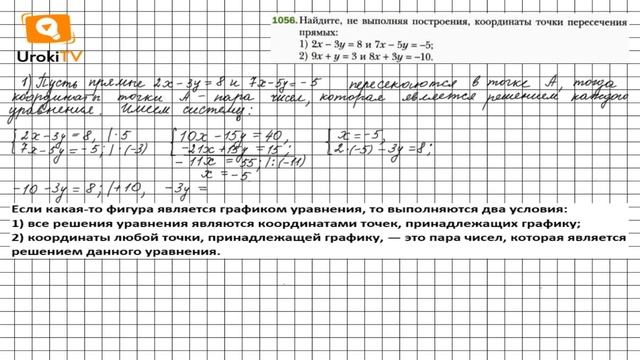 UrokiTV
1056. Найдите, не выполняя построения, координаты точки пересечения
прямых:
1) 2x − 3y = 8 и 7x − 5y = −5;
2) 9x + y = 3 и 8x + 3y = −10.
1) Пусть прямые 2x − 3y = 8 и 7x − 5y = − 5 пересекаются в точке A, тогда
координаты точки A − пара чисел, которая является решением каждого
уравнения. Имеем систему:
{ 2x − 3y = 8, | · 5 { 10x − 15y = 40, { x = −5,
7x − 5y = −5; | · (−3) −21x + 15y = 15; 2 · (−5) − 3y = 8;
− 11x = 55; | : (−11)
x = −5
−10 − 3y = 8; | +10, −3y =
Если какая-то фигура является графиком уравнения, то выполняются два условия:
1) все решения уравнения являются координатами точек, принадлежащих графику;
2) координаты любой точки, принадлежащей графику, — это пара чисел, которая является
решением данного уравнения.